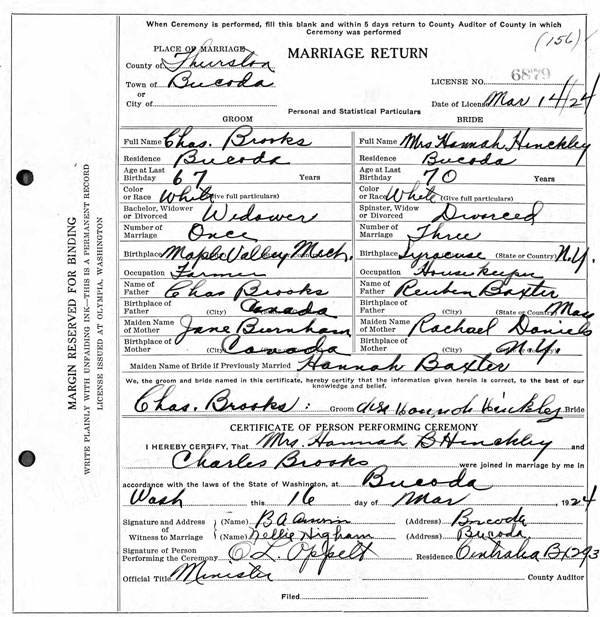 When Ceremony is performed, fill this blank and within 5 days return to County Auditor of County in which
Ceremony was performed
(156)
PLACE OF MARRIAGE
MARRIAGE RETURN
County of Thurston
Town of Bucoda
LICENSE NO. 6879
or
City of
Date of License Mar 14/24
Personal and Statistical Particulars
GROOM BRIDE
Full Name Chas. Brooks Full Name Mrs Hannah Hinckley
Residence Bucoda Residence Bucoda
Age at Last Birthday 67 Years Age at Last Birthday 70 Years
Color or Race White (Give full particulars) Color or Race White (Give full particulars)
Bachelor, Widower or Divorced Widower Spinster, Widow or Divorced Divorced
Number of Marriage Once Number of Marriage Three
Birthplace Maple Valley Mich. Birthplace Syracuse (State or Country) N.Y.
Occupation Farmer Occupation Housekeeper
Name of Father Chas Brooks Name of Father Reuben Baxter
Birthplace of Father (City) Canada Birthplace of Father (City) (State or Country) Mass
Maiden Name of Mother Jane Burnham Maiden Name of Mother Rachael Daniels
Birthplace of Mother (City) Canada Birthplace of Mother (City) N.Y.
Maiden Name of Bride if Previously Married Hannah Baxter
We, the groom and bride named in this certificate, hereby certify that the information given herein is correct, to the best of our
knowledge and belief.
Chas. Brooks: Groom Hannah Hinkley Bride
CERTIFICATE OF PERSON PERFORMING CEREMONY
I HEREBY CERTIFY, That Mrs. Hannah B Hinckley and
Charles Brooks were joined in marriage by me in
accordance with the laws of the State of Washington, at Bucoda
Wash this 16 day of Mar 1924
Signature and Address (Name) B A (Address) Bucoda
of
Witness to Marriage (Name) Nellie Higham (Address) Bucoda
Signature of Person Performing the Ceremony O L Oppelt Residence Centralia Bx 293
Official Title Minister County Auditor
Filed
MARGIN RESERVED FOR BINDING
WRITE PLAINLY WITH UNFADING INK—THIS IS A PERMANENT RECORD
LICENSE ISSUED AT OLYMPIA, WASHINGTON